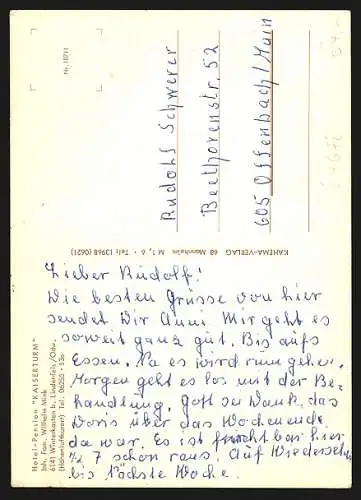 Hotel-Pension "KAISERTURM"
Inh. Fam. Wilhelm Mink
6141 Winterkasten b. Lindenfels/Odw.
(Höhenluftkurort) Tel. 06255 - 536
Lieber Rudolf!
Die besten Grüsse von hier
sendet Dir Anni. Mir geht es
soweit ganz gut. Bis aufs
Essen. Na es wird rum gehen.
Morgen geht es los mit der Be-
handlung. Gott sei Dank, das
Doris über das Wochenende
da war. Es ist furchtbar hier
½ 7 schon raus. Auf Wiedersehn
bis nächste Woche.
KAHEMA-VERLAG 68 Mannheim M 1, 6 · Tel: 13968 (0621)
Nr. 10711
Rudolf Schwerer
Beethovenstr. 52
605 Offenbach/Main